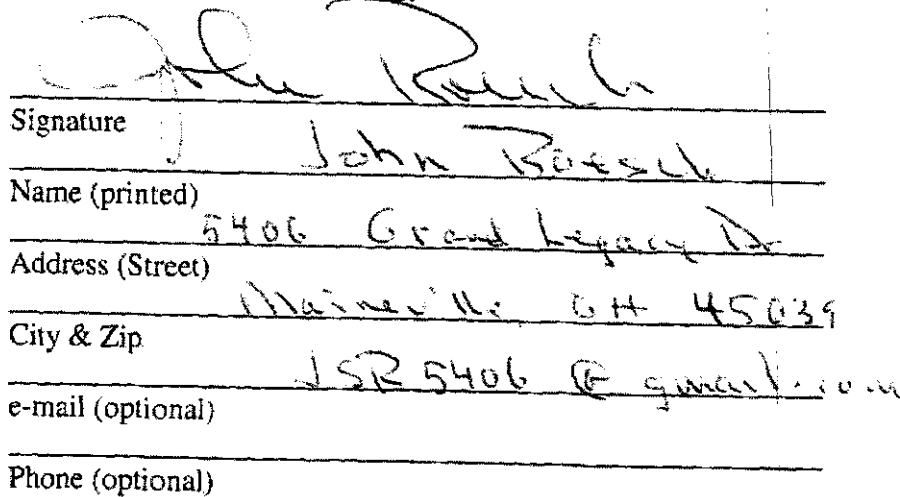 John Roesch
Signature
John Roesch
Name (printed)
5406 Grand Legacy Dr
Address (Street)
Maineville OH 45039
City & Zip
JSR5406@gmail.com
e-mail (optional)
Phone (optional)